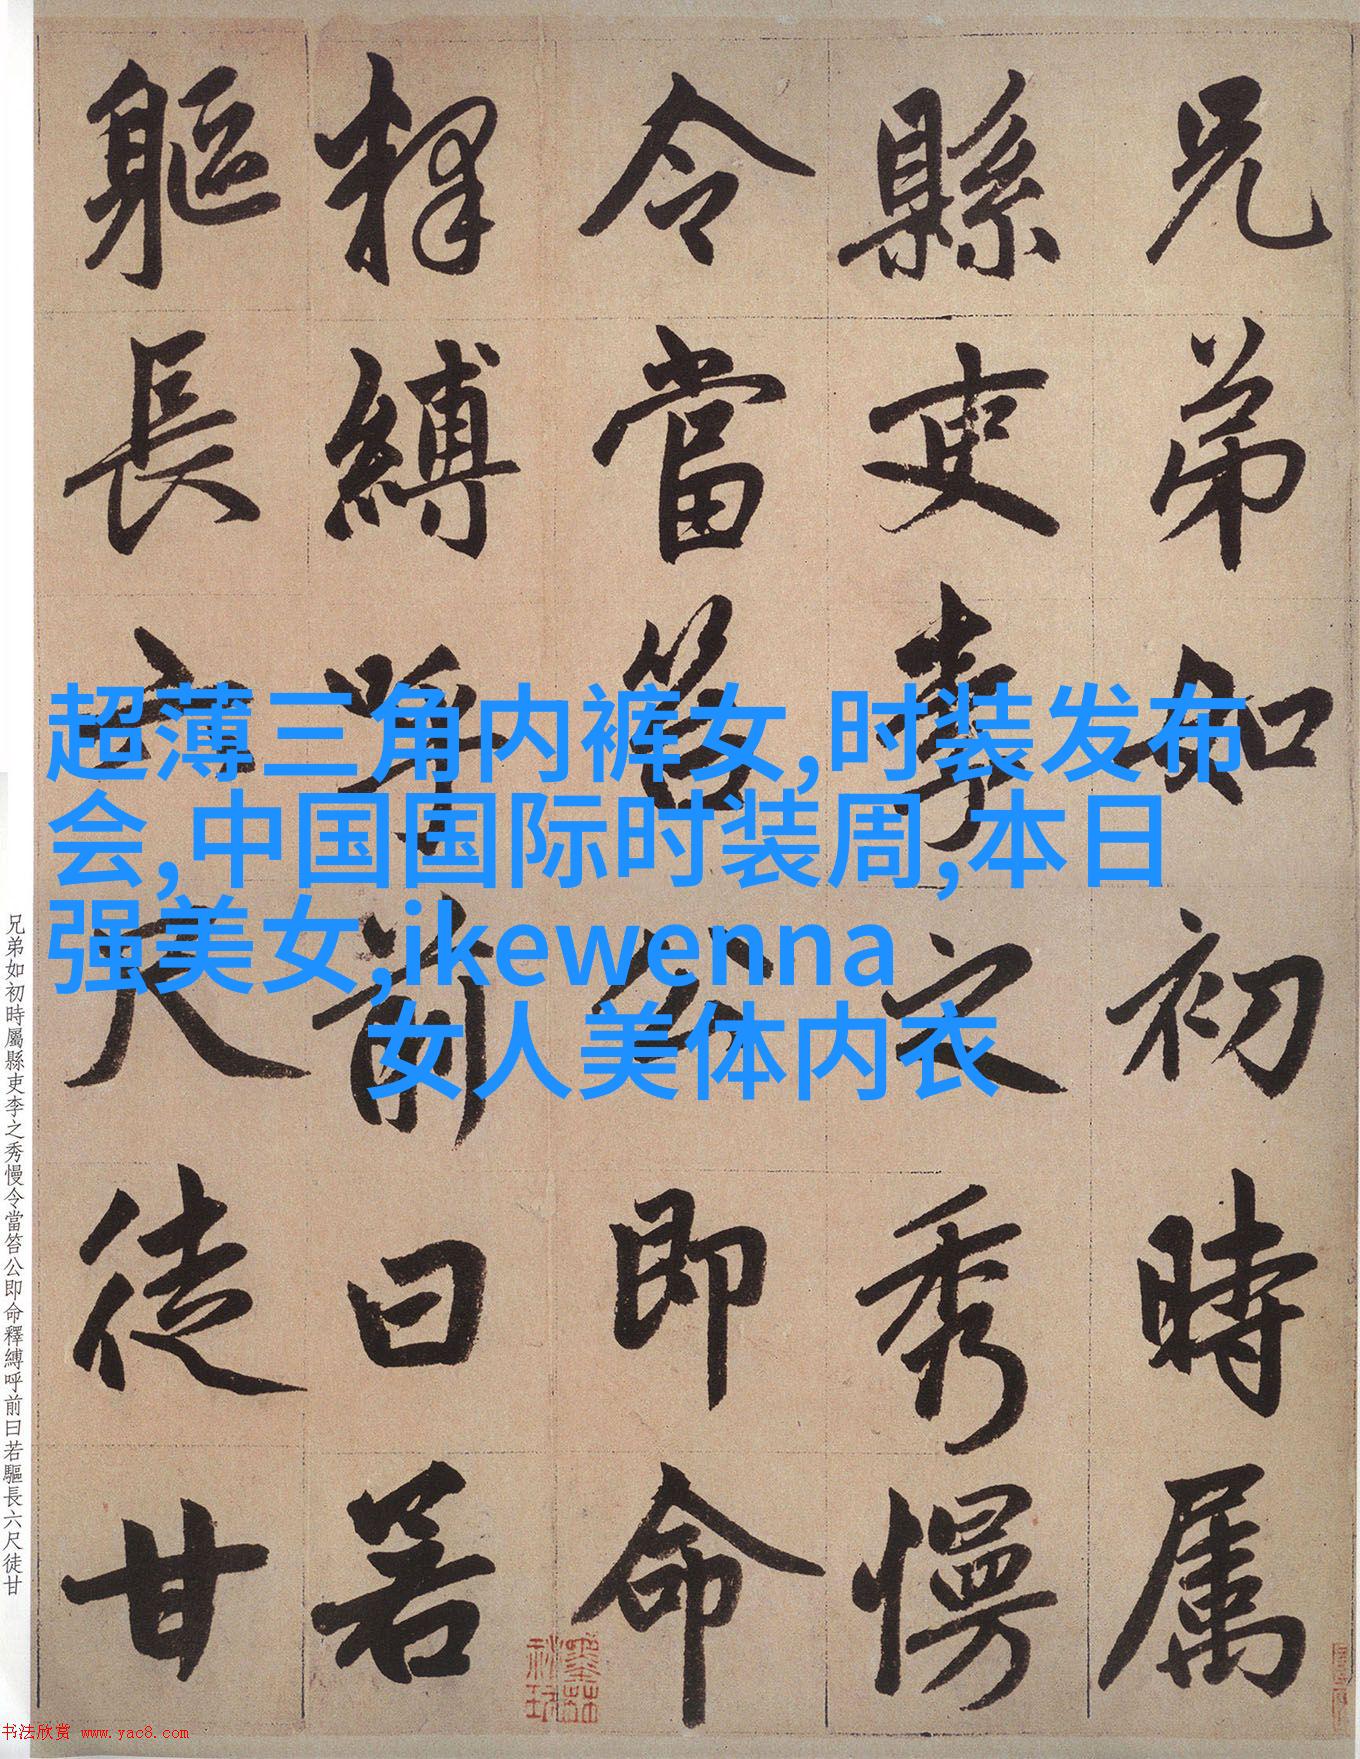 兄弟如初時属
縣吏李之秀慢
令當笞公即命
釋縛呼前曰若
軀長六尺徒甘
超薄三角内裤女,时装发布
会,中国国际时装周,本日
强美女,ikewenna
女人美体内衣
兄弟如初時屬縣吏李之秀慢令當笞公即命釋縛呼前曰若驅長六尺徒甘
书法欣赏 www.yac8.com